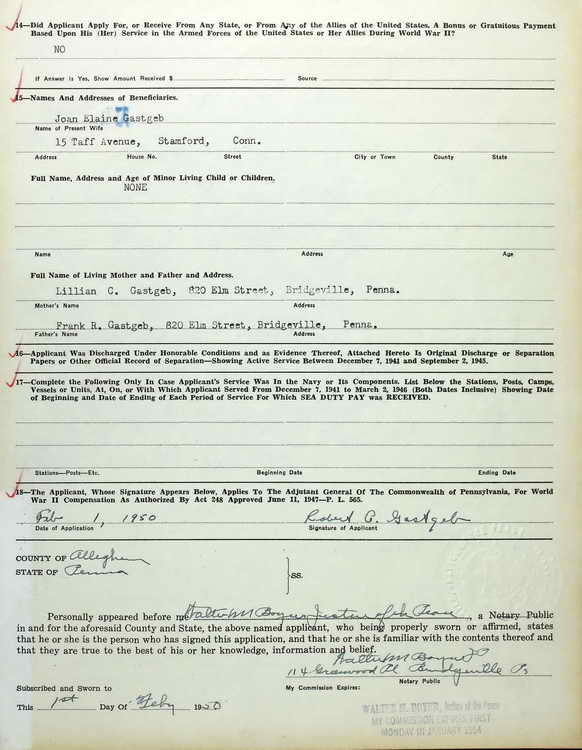 14—Did Applicant Apply For, or Receive From Any State, or From Any of the Allies of the United States. A Bonus or Gratuitous Payment
Based Upon His (Her) Service in the Armed Forces of the United States or Her Allies During World War II?
NO
If Answer is Yes, Show Amount Received $ Source
15—Names And Addresses of Beneficiaries.
Joan Elaine Gastgeb
Name of Present Wife
15 Taff Avenue, Stamford, Conn.
Address House No. Street City or Town County State
Full Name, Address and Age of Minor Living Child or Children.
NONE
Name Address Age
Full Name of Living Mother and Father and Address.
Lillian C. Gastgeb, 820 Elm Street, Bridgeville, Penna.
Mother's Name Address
Frank R. Gastgeb, 820 Elm Street, Bridgeville, Penna.
Father's Name Address
16—Applicant Was Discharged Under Honorable Conditions and as Evidence Thereof, Attached Hereto Is Original Discharge or Separation
Papers or Other Official Record of Separation—Showing Active Service Between December 7, 1941 and September 2, 1945.
17—Complete the Following Only In Case Applicant's Service Was In the Navy or Its Components. List Below the Stations, Posts, Camps,
Vessels or Units, At, On, or With Which Applicant Served From December 7, 1941 to March 2, 1946 (Both Dates Inclusive) Showing Date
of Beginning and Date of Ending of Each Period of Service For Which SEA DUTY PAY was RECEIVED.
Stations—Posts—Etc. Beginning Date Ending Date
18—The Applicant, Whose Signature Appears Below, Applies To The Adjutant General Of The Commonwealth of Pennsylvania, For World
War II Compensation As Authorized By Act 248 Approved June 11, 1947—P. L. 565.
Feb 1, 1950 Robert C. Gastgeb
Date of Application Signature of Applicant
COUNTY OF Allegheny
STATE OF Penna
SS.
Personally appeared before me Walter M Boyer Justice of the Peace, a Notary Public
in and for the aforesaid County and State, the above named applicant, who being properly sworn or affirmed, states
that he or she is the person who has signed this application, and that he or she is familiar with the contents thereof and
that they are true to the best of his or her knowledge, information and belief.
Walter M Boyer JP
Bridgeville Pa
Notary Public
Subscribed and Sworn to My Commission Expires:
This 1st Day Of Feby 1950
WALTER M. BOYER, Justice of the Peace
MY COMMISSION EXPIRES FIRST
MONDAY IN JANUARY 1954